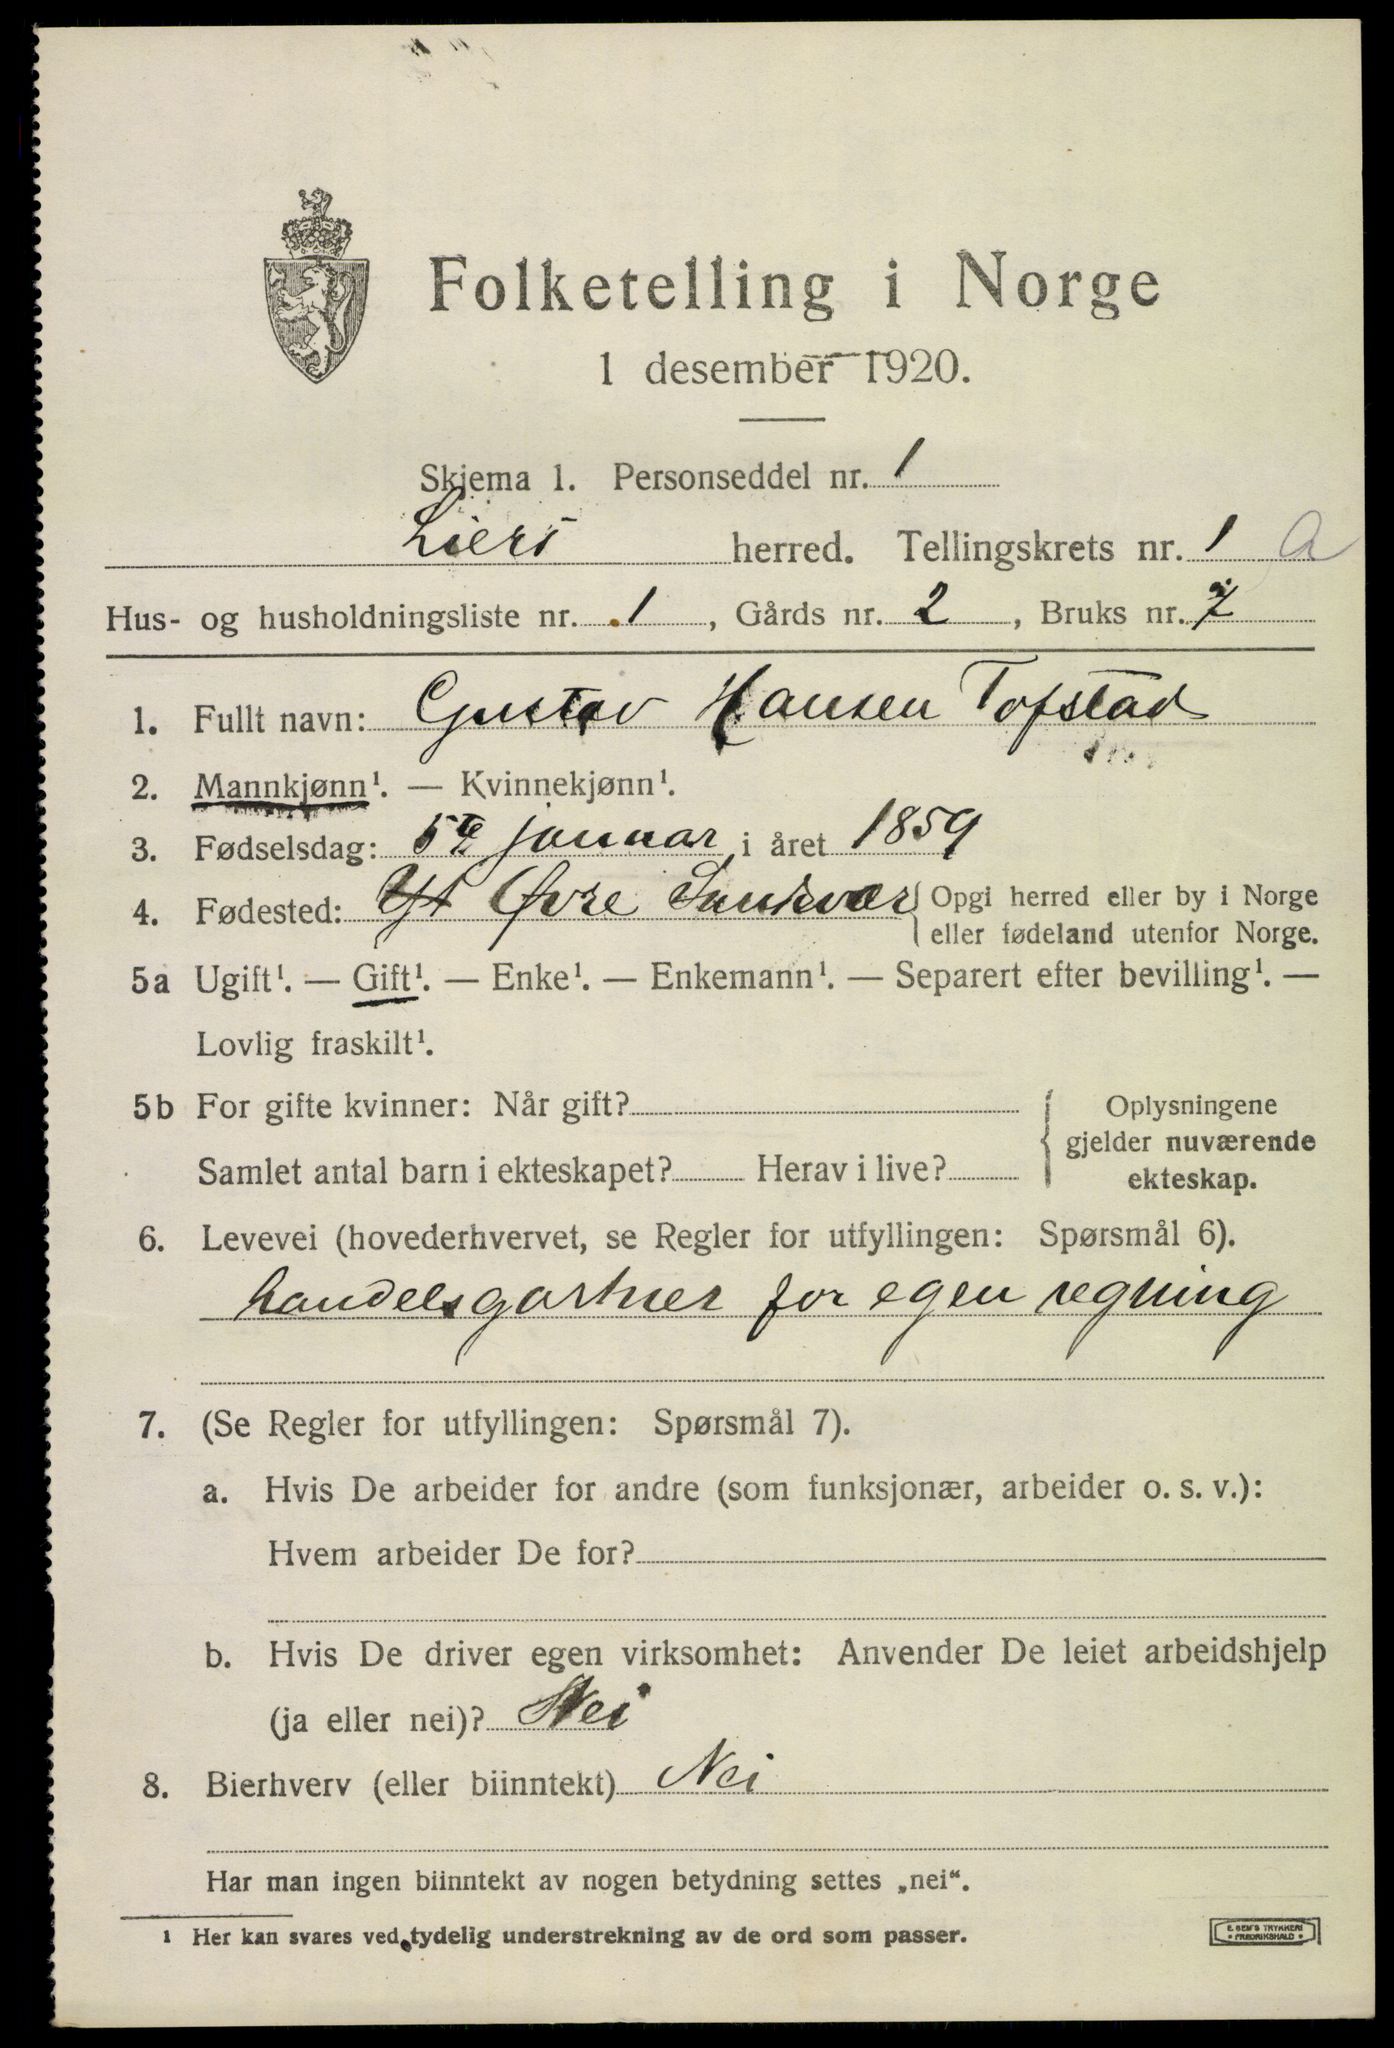 Folketelling i Norge
1 desember 1920.
Skjema 1. Personseddel nr. 1
Liers herred. Tellingskrets nr. 1 a
Hus- og husholdningsliste nr. 1, Gårds nr. 2, Bruks nr. 7
1. Fullt navn: Gustav Hansen Tofstad
2. Mannkjønn¹. — Kvinnekjønn¹.
3. Fødselsdag: 5te januar i året 1859
4. Fødested: Øvre Sandsvær Opgi herred eller by i Norge
eller fødeland utenfor Norge.
5a Ugift¹. — Gift¹. — Enke¹. — Enkemann¹. — Separert efter bevilling¹. —
Lovlig fraskilt¹.
5b For gifte kvinner: Når gift?
Samlet antal barn i ekteskapet? Herav i live?
Oplysningene
gjelder nuværende
ekteskap.
6. Levevei (hovederhvervet, se Regler for utfyllingen: Spørsmål 6).
handelsgartner for egen regning
7. (Se Regler for utfyllingen: Spørsmål 7).
a. Hvis De arbeider for andre (som funksjonær, arbeider o. s. v.):
Hvem arbeider De for?
b. Hvis De driver egen virksomhet: Anvender De leiet arbeidshjelp
(ja eller nei)? Nei
8. Bierhverv (eller biinntekt) Nei
Har man ingen biinntekt av nogen betydning settes „nei“.
1 Her kan svares ved tydelig understrekning av de ord som passer.
E. SEM'S TRYKKERI
FREDRIKSHALD